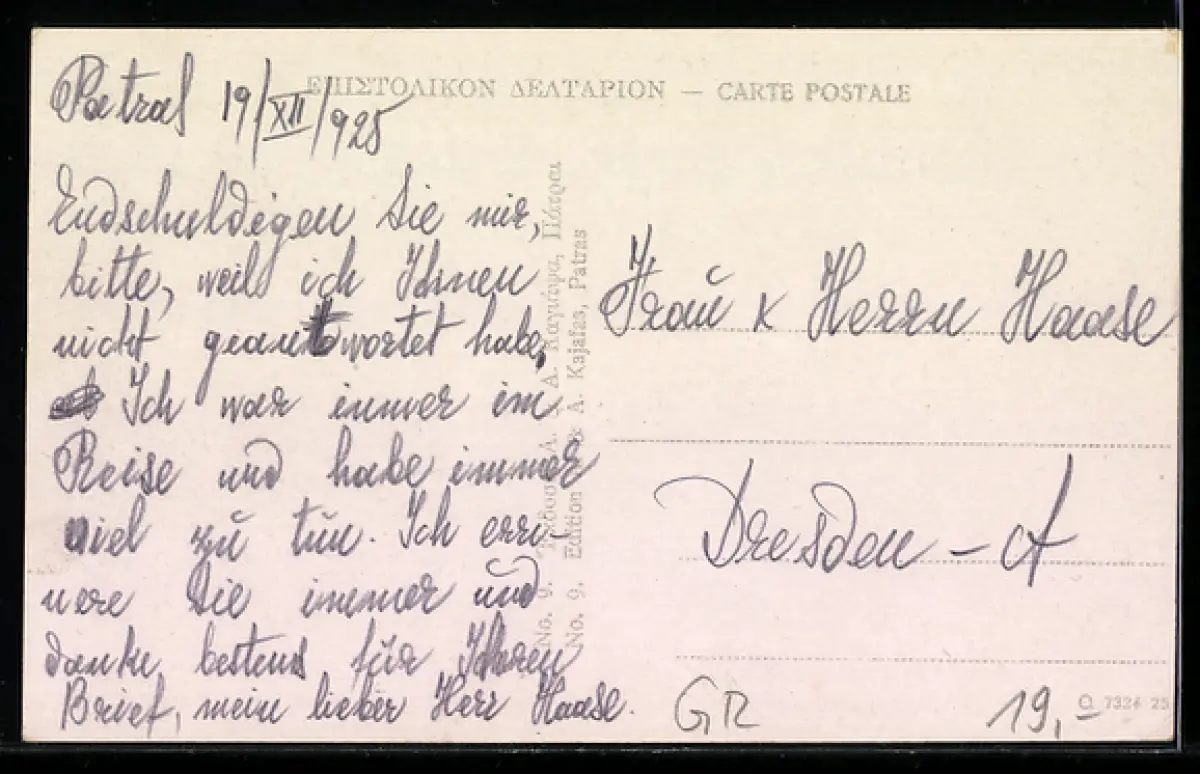 ΕΠΙΣΤΟΛΙΚΟΝ ΔΕΛΤΑΡΙΟΝ — CARTE POSTALE
Patras 19/XII/925
Endschuldigen Sie mir,
bitte, weil ich Ihnen
nicht geantwortet habe,
Ich war immer im
Reise und habe immer
viel zu tun. Ich erri-
nere Sie immer und
danke bestens für Ihren
Brief, mein lieber Herr Haase.
No. 9. Ἔκδοσις Α. & Α. Καγιάφα, Πάτραι
No. 9. Edition A. & A. Kajafas, Patras
Frau x Herrn Haase
Dresden - A
GR
19,-
O 7324 25